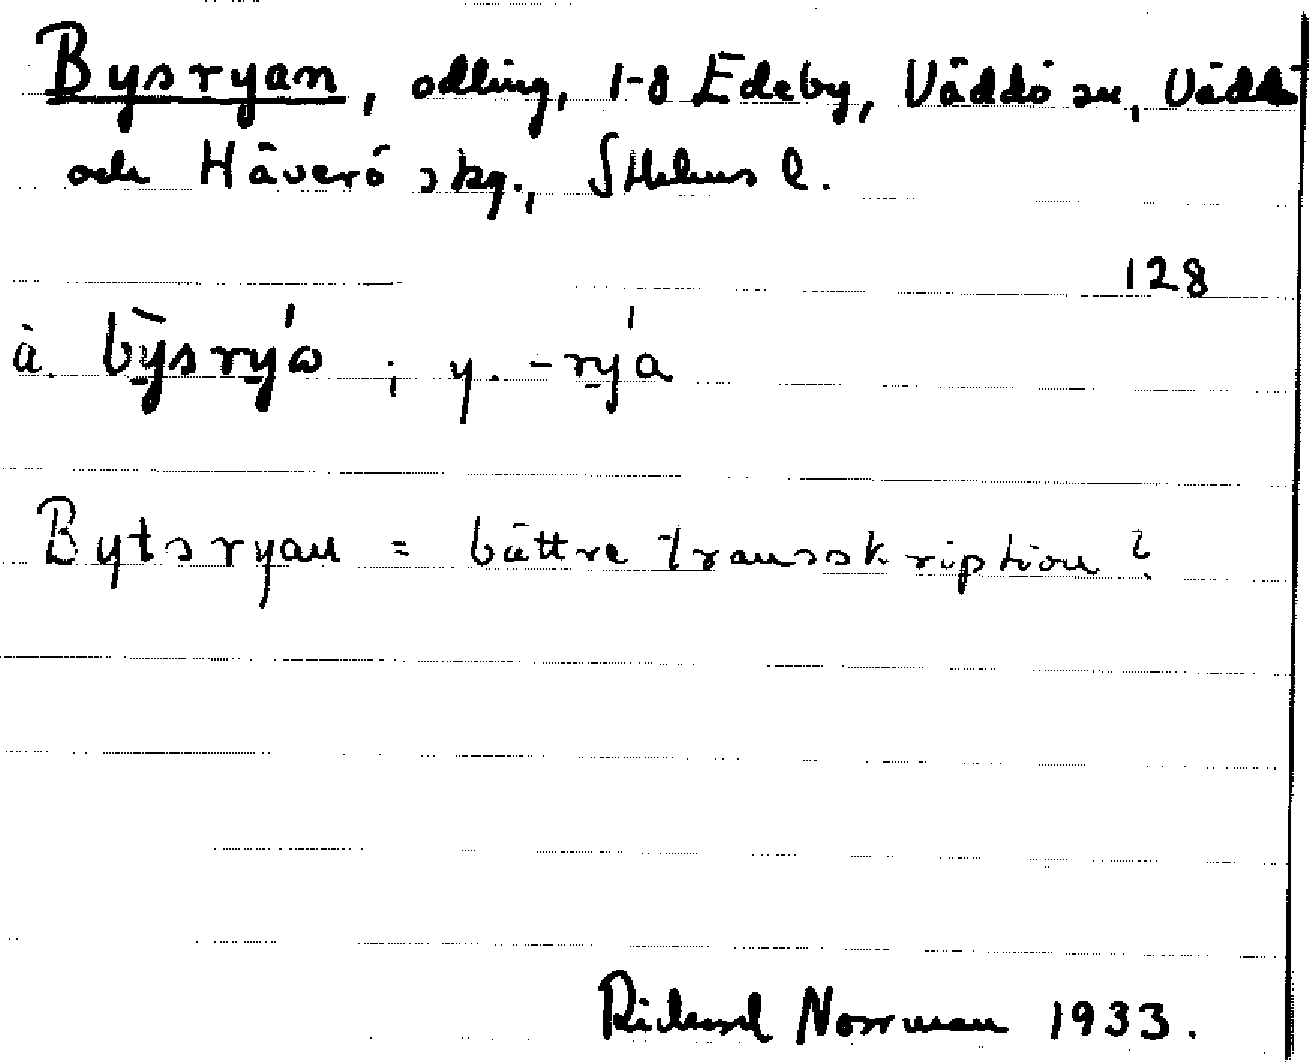 Bysryan, odling, 1-8 Edeby, Väddö sn, Väddö
och Häverö skg., Sthlms l.
128
à. bỳsrýω ; y. -rýa
Bytsryan = bättre transskription?
Richard Norrman 1933.